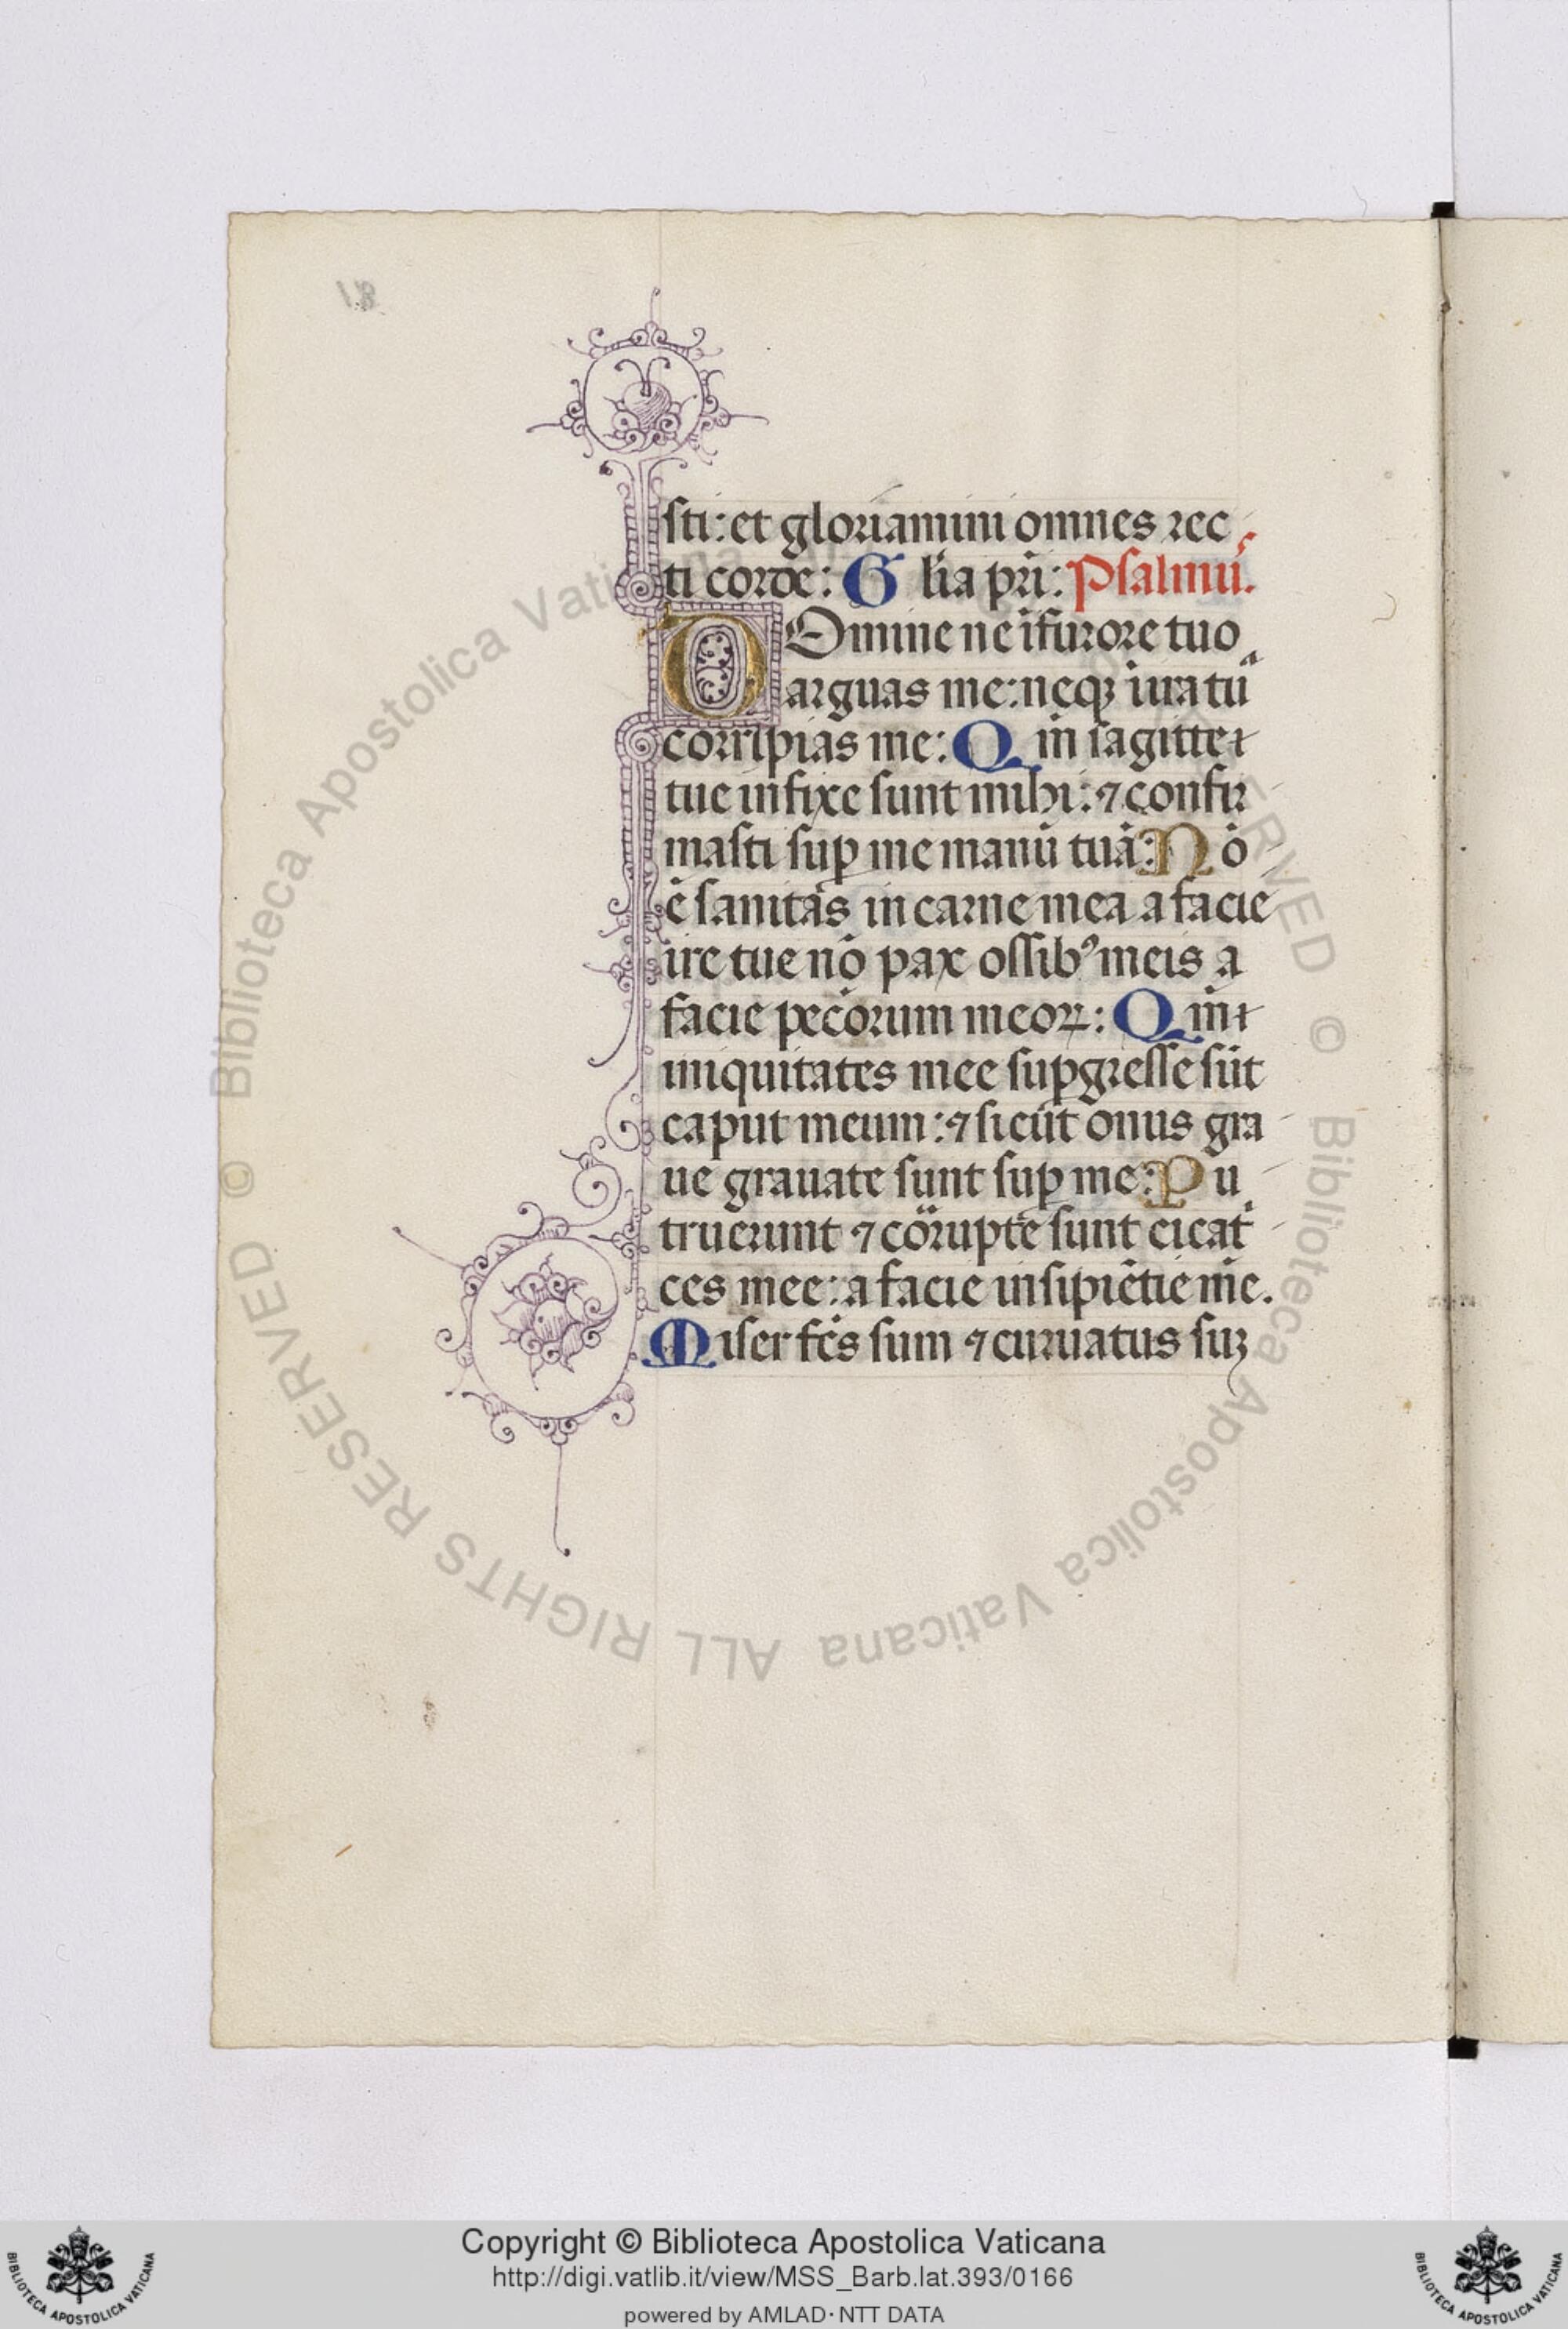 sti: et gloriamini omnes rec
ti corde: G lia pri: Psalmus.
DOmine ne i furore tuo
arguas me: neqꝫ i ira tua
corripias me: Q m̄ sagitte
tue infixe sunt mihi: ⁊ confir
masti suꝑ me manū tuā: N ō
ē sanitas in carne mea a facie
ire tue nō pax ossibꝰ meis a
facie pec̄orum meoꝝ: Q m̄
iniquitates mee suꝑgresse sūt
caput meum: ⁊ sicut onus gra
ue grauate sunt suꝑ me: P u
truerunt ⁊ corrupte sunt cicat
ces mee: a facie insipiētie me.
M iser fc̄s sum ⁊ curuatus suꝫ
© Biblioteca Apostolica Vaticana ALL RIGHTS RESERVED © Biblioteca Apostolica Vaticana
Copyright © Biblioteca Apostolica Vaticana
http://digi.vatlib.it/view/MSS_Barb.lat.393/0166
powered by AMLAD·NTT DATA
BIBLIOTECA APOSTOLICA VATICANA
BIBLIOTECA APOSTOLICA VATICANA